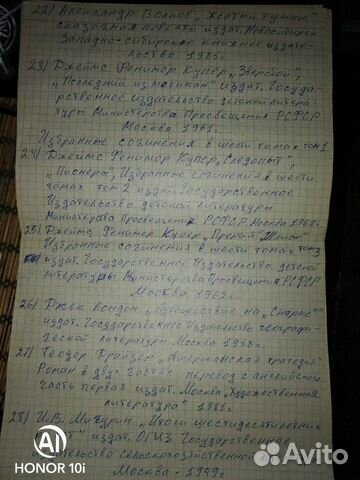 22) Александр Волков „Желтый туман"
сказочная повесть издат. Новосибирск
Западно-сибирское книжное издате-
льство 1985г.
23) Джеймс Фенимор Купер „Зверобой",
„Последний из могикан" издат. Госуда-
рственное издательство детской литера-
туры Министерства Просвещения РСФСР
Москва 1961г.
Избранные сочинения в шести томах том 1
24) Джеймс Фенимор Купер „Следопыт",
„Пионеры", Избранные сочинения в шести
томах том 2 издат. Государственное
Издательство детской литературы
Министерства Просвещения РСФСР. Москва 1962г.
25) Джеймс Фенимор Купер „Прерия"
Избранные сочинения в шести томах том 3
издат. Государственное Издательство детской
литературы Министерства Просвещения РСФСР
Москва 1962г.
26) Джек Лондон „Путешествие на „Снарке""
издат. Государственное Издательство географи-
ческой литературы Москва 1958г.
27) Теодор Драйзер „Американская трагедия"
Роман в двух частях перевод с английского
часть первая издат. Москва „Художественная
литература" 1985г.
28) И.В. Мичурин „Итоги шестидесятилетних
издат. ОГИЗ Государственное
издательство сельскохозяйственной
Москва - 1949г.
AI
HONOR 10i
Avito